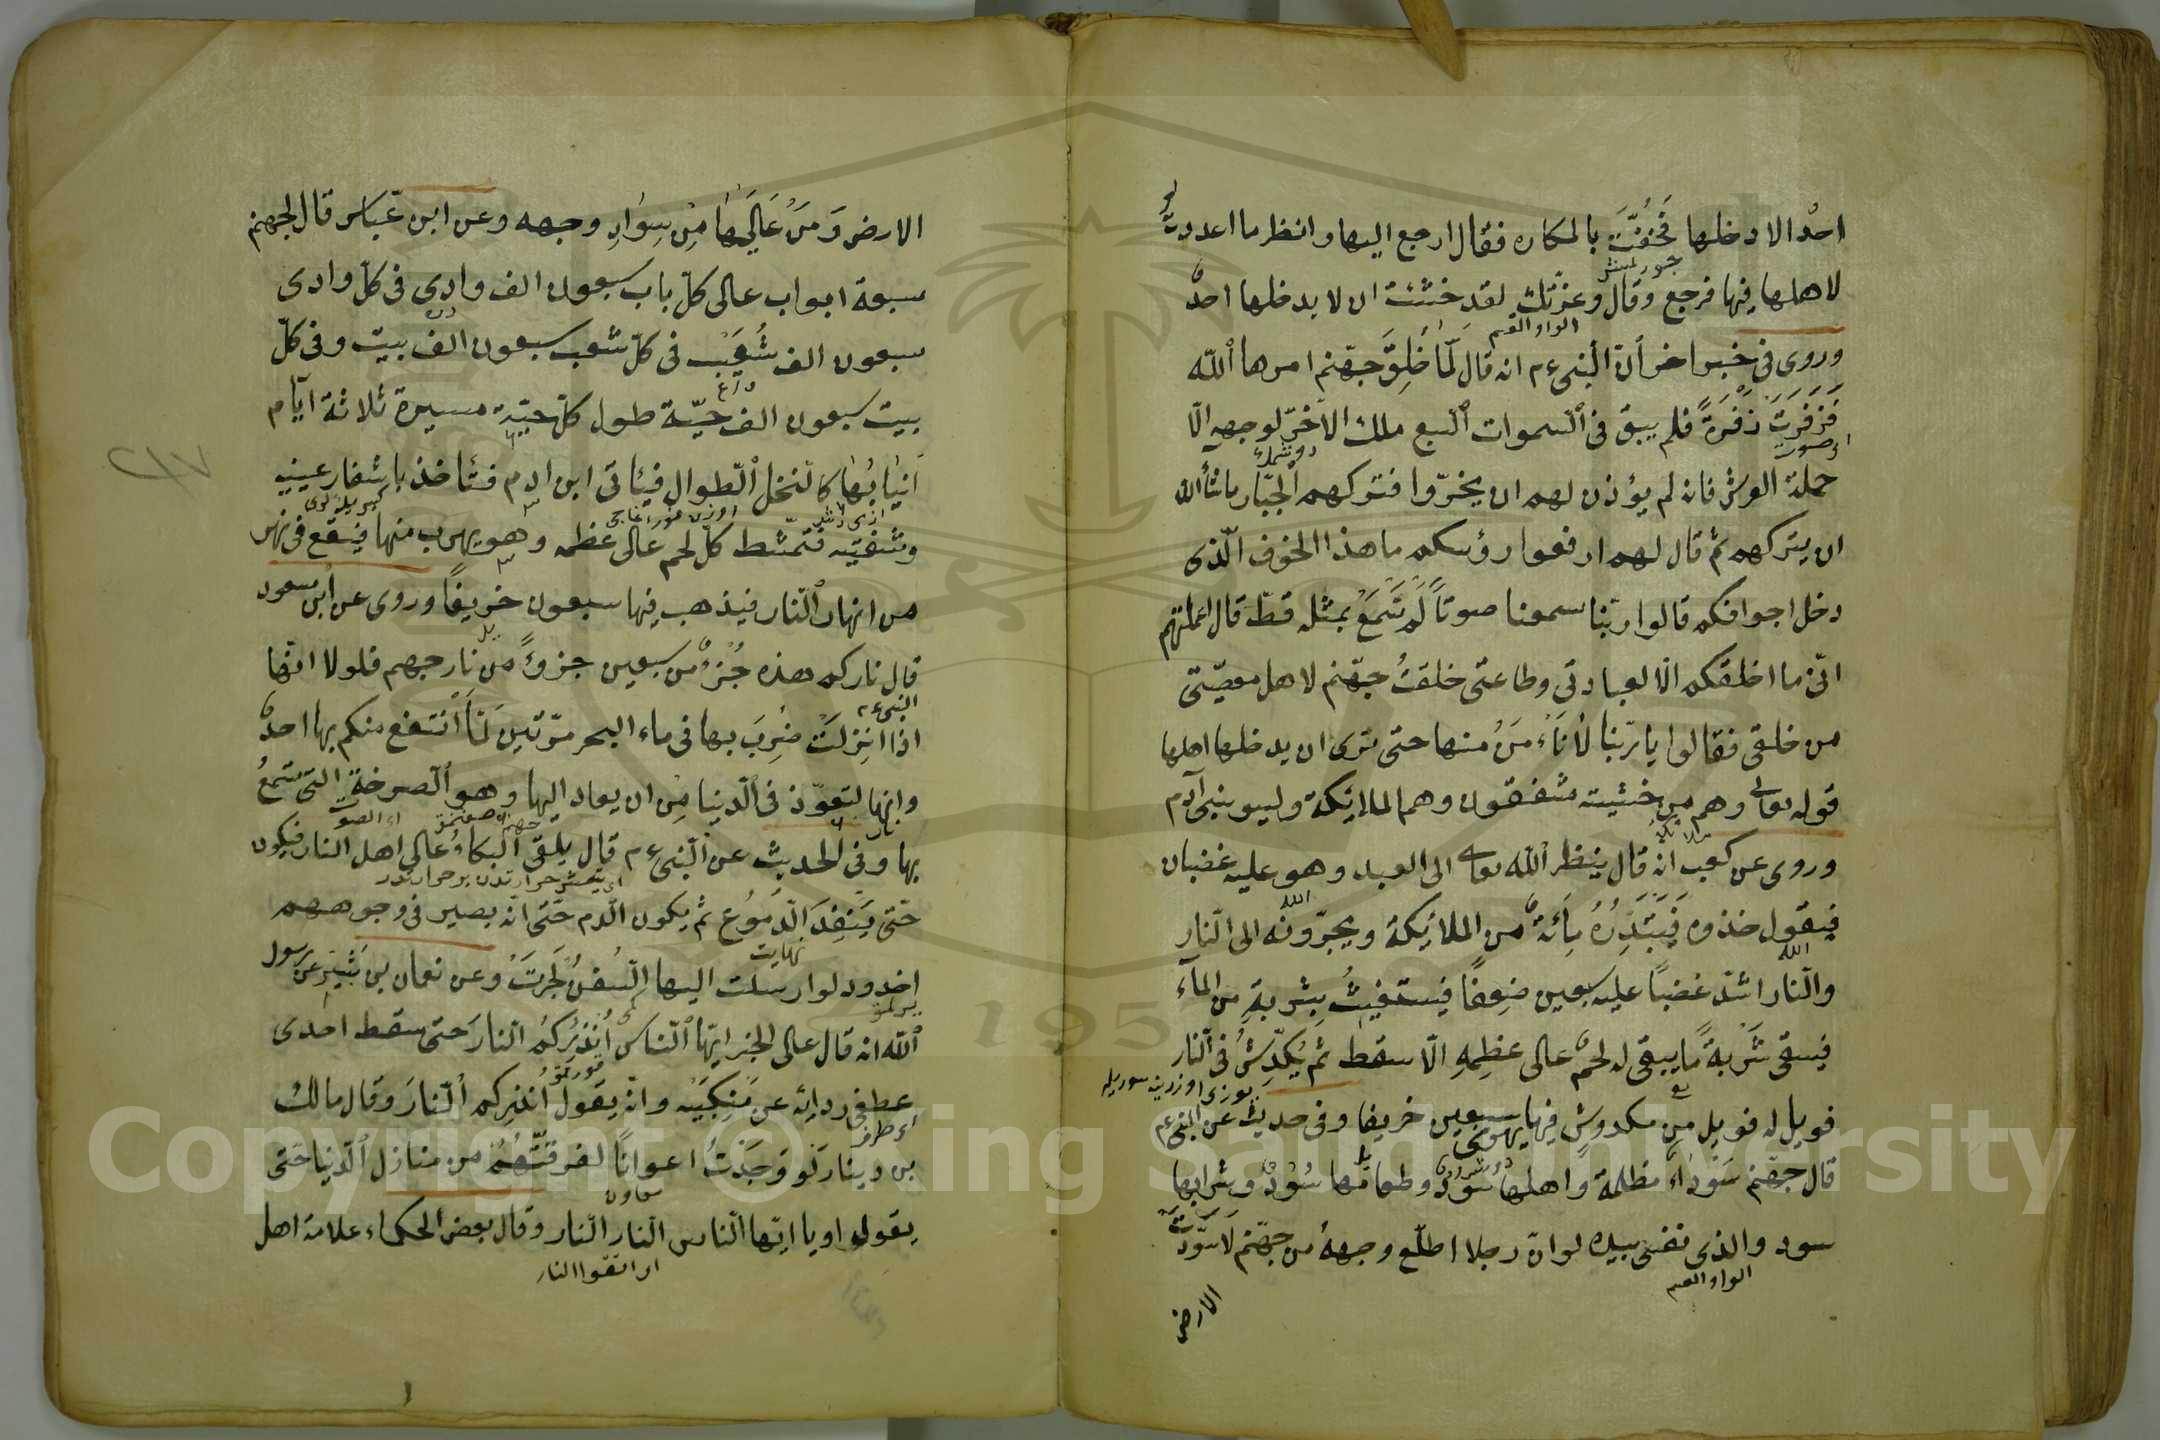 احدٌ الا دخلها فحُفَّتْ بالمكاره فقال ارجع اليها وانظر ما اعددت
لاهلها فيها فرجع وقال وعزّتك لقد خشئت ان لا يدخلها احدٌ
الواو القسم
وروى فى خبر اخر أنّ النبى ءم انه قال لمّا خُلِقَ جهنم امرها الله
فَزَفَرَتْ زَفْرَةً فلم يبق فى السموات السبع ملك الا خرّ لوجهه الّا
حملة العرش فانه لم يؤذن لهم ان يخرّوا فتركهم الجبّار ما شأ الله
ان يتركهم ثم قال لهم ارفعوا رؤسكم ما هذا الخوف الّذى
دخل اجوافكم قالوا ربّنا سمعنا صوتاً لم نَسْمَعْ بمثله قطّ قال اعلمتهم
انّى ما اخلقكم الّا لعبادتى وطاعتى خلقتُ جهّنم لاهل معصيّتى
من خلقى فقالوا يا ربّنا لأنَاْءمَنُ منها حتى نرى ان يدخلها اهلها
قوله تعالى وهم من خشيته مشفقون وهم الملائكة وليسو بنى آدم
وروى عن كعب انّه قال ينظر الله تعالى الى العبد وهو عليه غضبان
الله
فيقول خذوه فَيَبْتَدِرُهُ مِأَئَةٌ من الملائكة ويجرّونه الى النّارِ
الله
والنّار اشدّ غضباً عليه سبعين ضِعفاً فيستغيثُ بِشربةٍ من الماء
فيسقى شَرْبةً ما يبقى له لحمٌ عالى عظمِهِ الّا سقط ثم يُكدِّشُ فى النّار
فويل له فويل من مكدوش فيها يهوى سبعين خريفا وفى حديث عن النبىءم
قال جهّنم سَوْدَاءُ مظلمة واهلها سُوْدٌ وطعامها سُوْدٌ وشرابها
سود والذى نفسى بيده لو انّ رجلا اطلّع وجههُ من جهنّم لَاَسْوَدَّتْ
الواو القسم
الارض
الارض وَمَنْ عَالَيْهَا مِنْ سِوَادِ وجهه وعن ابن عبّاس قال لجهنم
سبعة ابواب عالى كلّ باب سبعون الف وادى فى كلّ وادى
سبعون الف شُعَبٍ فى كلّ شعب سبعون الف بيت وفى كلّ
بيت سبعون الف حيّة طول كلّ حيّة مسيرة ثلاثة ايّام
انيابُها كالنّخل الطّوال فيئاتى ابن ادم فتئاخذ باشفار عينيه
وشفتيه فتمّشط كلّ لحم عالى عظمه وهو يهرب منها فيقع فى نهر
من انهار النّار فيذهب فيها سبعون خريفًا وروى عن ابن مسعود
قال ناركم هذه جُزءٌ من سبعين جزءً من نار جهنم فلولا انّها
النبى ءم
اذا انزِلَتْ ضُرِبَ بها فى ماء البحر مرّتين لَمَا اَنْتَفع منكم بها احدٌ
وانها لتعوّذ فى الدنيا مِن ان يعاد اليها وهو الصرخة التى تسمعُ
نار جهنم اى الصوت
بها وفى الحديث عن النّبى ءم قال يلقى البكاءُ عالى اهل النار فيكون
حتّى يَنْفِدَ الّدمُوُع ثم يكون الّدم حتّى انّه يصير فى وجوههم
نهايت
اخدود لو ارسلت اليها السُفنُ لَجرَتْ وعن نعمان بن بَشِيَرٍ عن رسول
الله انه قال عالى الخبر ايّها النّاس اُنْذِرُكُم النّارَ حتى سقط احدى
عطفى ردائه عن مَنكِبَيْه وانّه يقول اُنذِركم النّارَ وقال مالك
اى طرف
بن دينار لَو وَجَدْتُ اعوانًا لفرقتُهُم من منازل الدّنيا حتّى
يقولو او يا ايّها النّاس النّار النّار وقال بعض الحكماء علامة اهل
اى اتقوا النار
٢١٧
Copyright © King Saud University
195